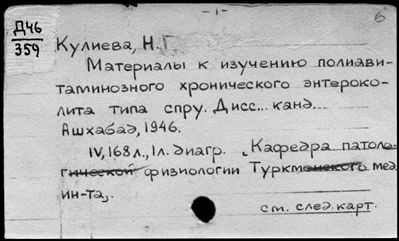 - 1 -
б
Д46
359
Кулиева, Н.Г.
Материалы к изучению полиави-
таминозного хронического энтероко-
лита типа спру. Дисс... канд...
Ашхабад, 1946.
IV, 168 л., 1 л. диагр. [Кафедра патоло-
гической физиологии Туркменского мед.
ин-та].
см. след. карт.